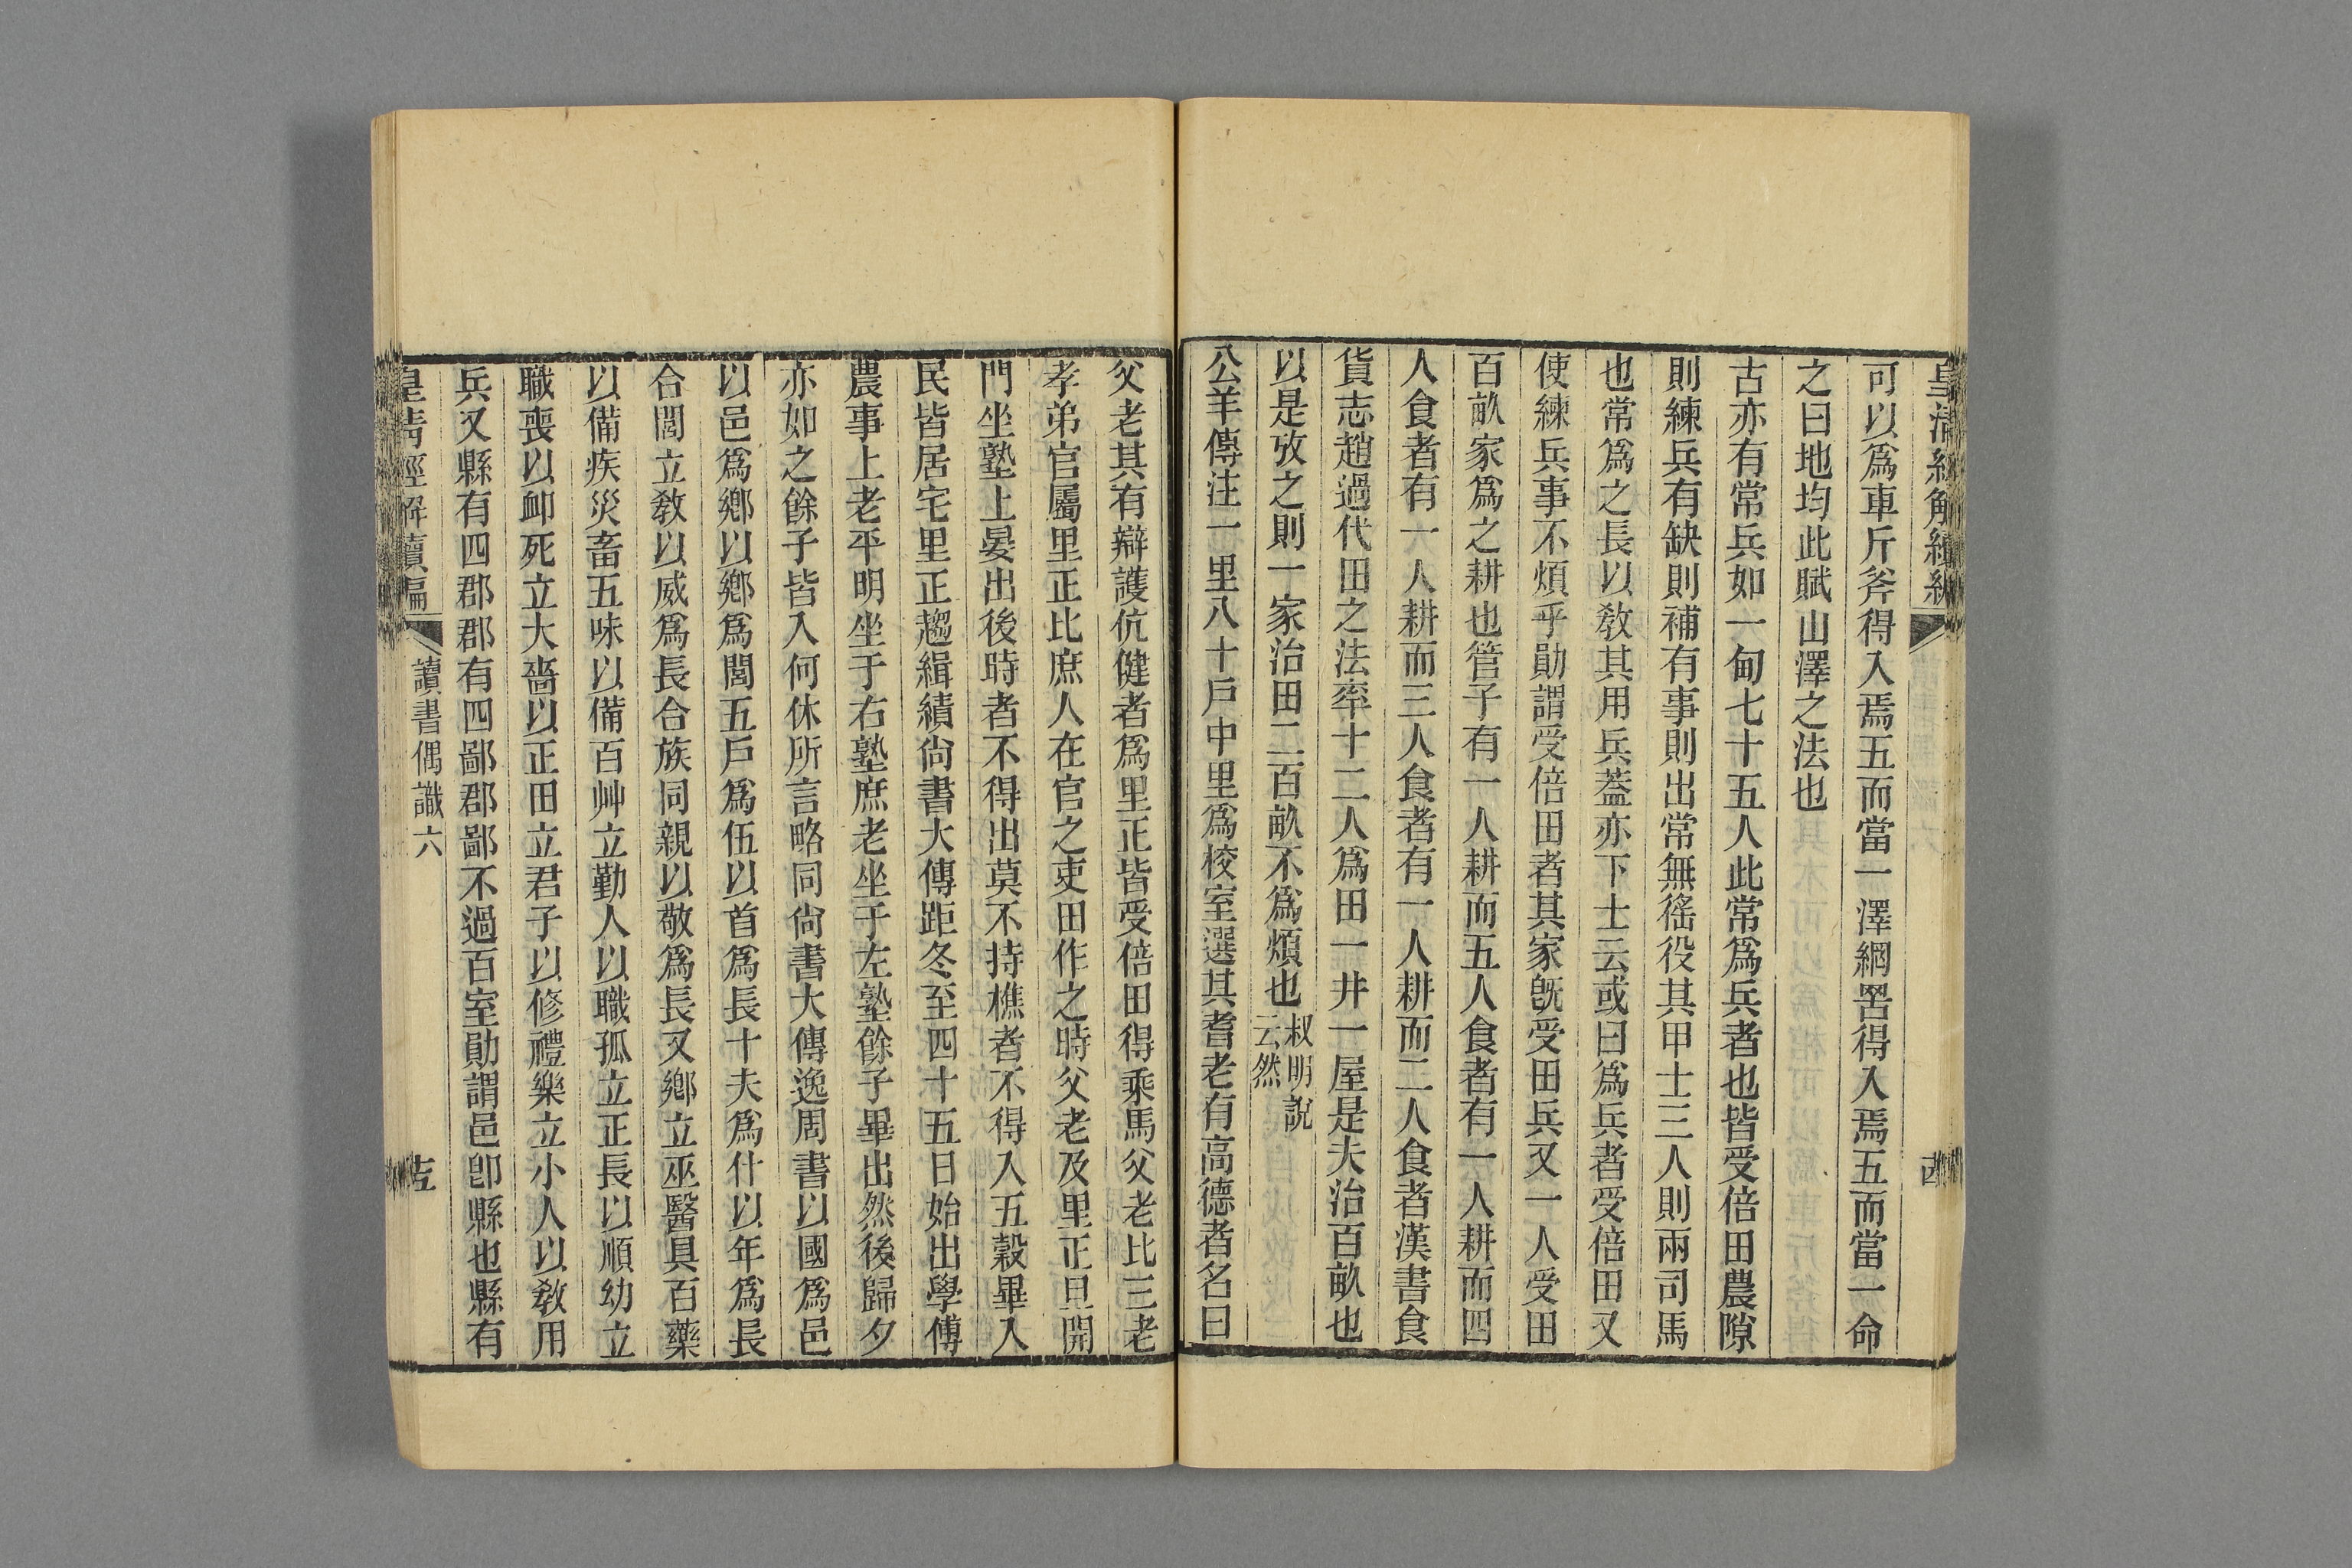 可以爲車斤斧得入焉五而當一澤網罟得入焉五而當一命
之曰地均此賦山澤之法也
古亦有常兵如一甸七十五人此常爲兵者也皆受倍田農隙
則練兵有缺則補有事則出常無徭役其甲士三人則兩司馬
也常爲之長以敎其用兵蓋亦下士云或曰爲兵者受倍田又
使練兵事不煩乎勛謂受倍田者其家旣受田兵又一人受田
百畝家爲之耕也管子有一人耕而五人食者有一人耕而四
人食者有一人耕而三人食者有一人耕而二人食者漢書食
貨志趙過代田之法率十二人爲田一井一屋是夫治百畝也
以是攷之則一家治田二百畝不爲煩也叔明說
云然
公羊傳注一里八十戶中里爲校室選其耆老有高德者名曰
父老其有辯護伉健者爲里正皆受倍田得乘馬父老比三老
孝弟官屬里正比庶人在官之吏田作之時父老及里正旦開
門坐塾上晏出後時者不得出莫不持樵者不得入五穀畢入
民皆居宅里正趨緝績尙書大傳距冬至四十五日始出學傅
農事上老平明坐于右塾庶老坐于左塾餘子畢出然後歸夕
亦如之餘子皆入何休所言略同尙書大傳逸周書以國爲邑
以邑爲鄉以鄉爲閭五戶爲伍以首爲長十夫爲什以年爲長
合閭立敎以威爲長合族同親以敬爲長又鄉立巫醫具百藥
以備疾災畜五味以備百艸立勤人以職孤立正長以順幼立
職喪以卹死立大嗇以正田立君子以修禮樂立小人以敎用
兵又縣有四郡郡有四鄙郡鄙不過百室勛謂邑卽縣也縣有
皇淸經解續編
讀書偶識六